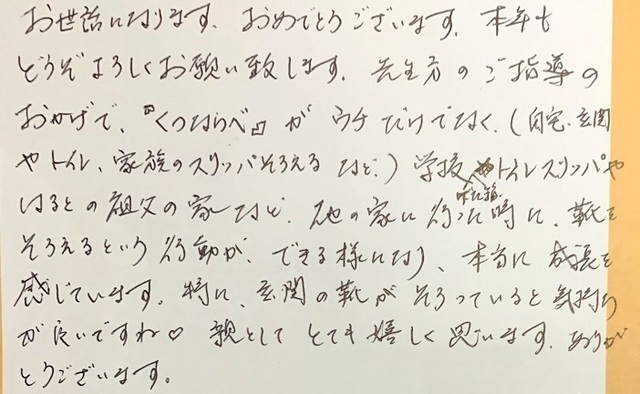 お世話になります。おめでとうございます。本年も
どうぞよろしくお願い致します。先生方のご指導の
おかげで、『くつならべ』が ウチだけでなく、(自宅・玄関
やトイレ、家族のスリッパそろえる など。) 学校やトイレスリッパや
げた箱、
はるとの祖父の家など、他の家に行った時に、靴を
そろえるという行動が、できる様になり、本当に成長を
感じています。特に、玄関の靴がそろっていると気持ち
が良いですね♡ 親として とても嬉しく思います。ありが
とうございます。